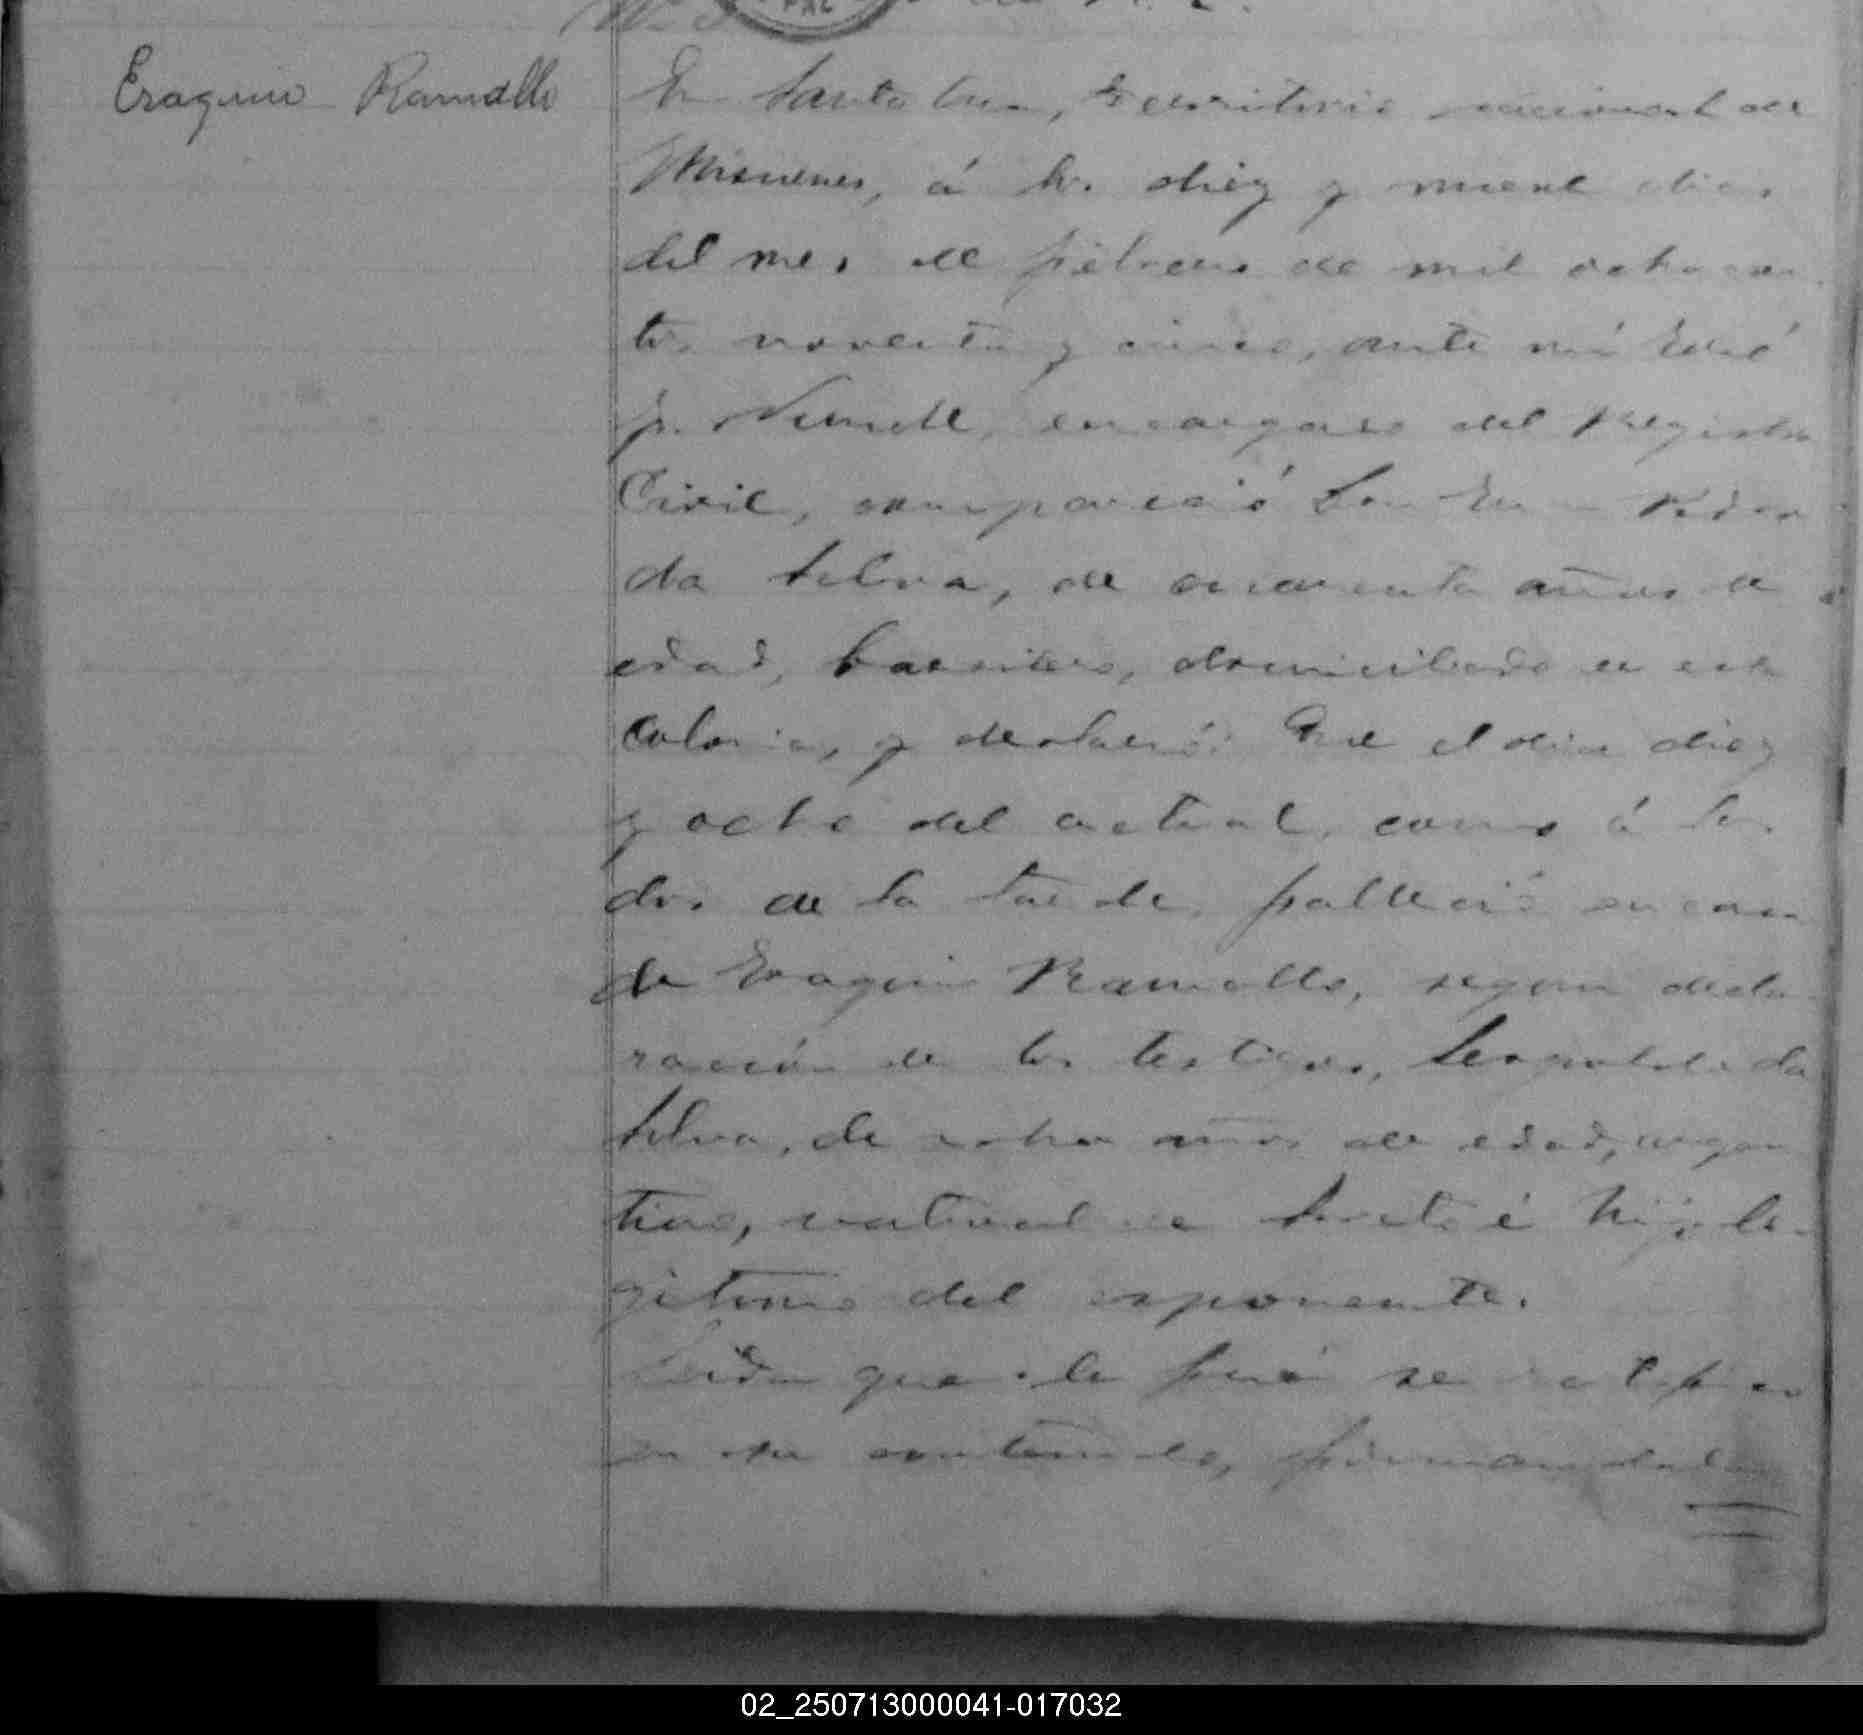 Eraquio Ramallo
En Santa Ana, Territorio nacional de
Misiones, á los diez y nueve dias
del mes de febrero de mil ochocien
tos noventa y cinco, ante mi José
encargado del Registro
Civil, compareció Don
da Silva, de cincuenta años de
edad, domiciliado en esta
Colonia, y declaró: Que el dia diez
y ocho del actual, como á las
dos de la tarde, falleció en casa
de Eraquio Ramallo, segun decla
ración de los testigos, Leopoldo da
Silva, de ocho años de edad, argen
tino, natural de Loreto é hijo le
gitimo del esponente.
Leida que le fué se ratificó
en su contenido, firmando
02_250713000041-017032